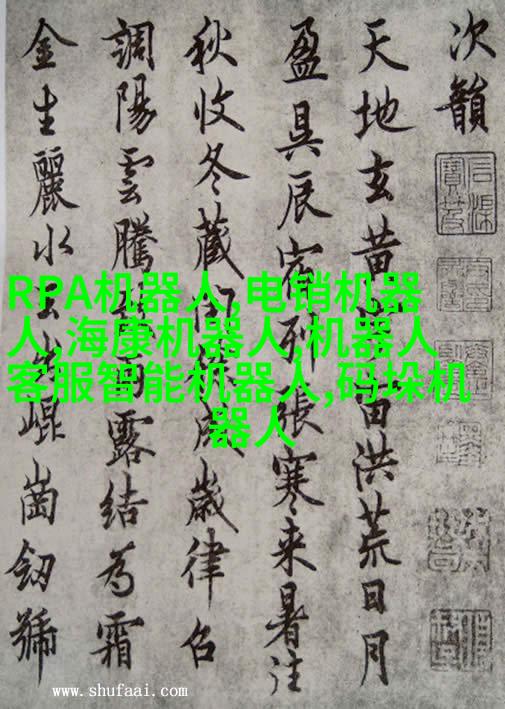 次韻
天地玄黄洪荒日月
盈昃辰宿列張寒来暑往
秋收冬蔵成歳律召
調陽雲騰露結為霜
金生麗水玉出崐崗劒號
RPA机器人,电销机器
人,海康机器人,机器人
客服智能机器人,码垛机
器人
www.shufaai.com